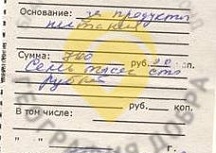 Основание: за продукты
питания
Сумма: 700 руб. 20 коп.
Семь тысяч сто
рублей
руб. коп.
В том числе:
" " г.